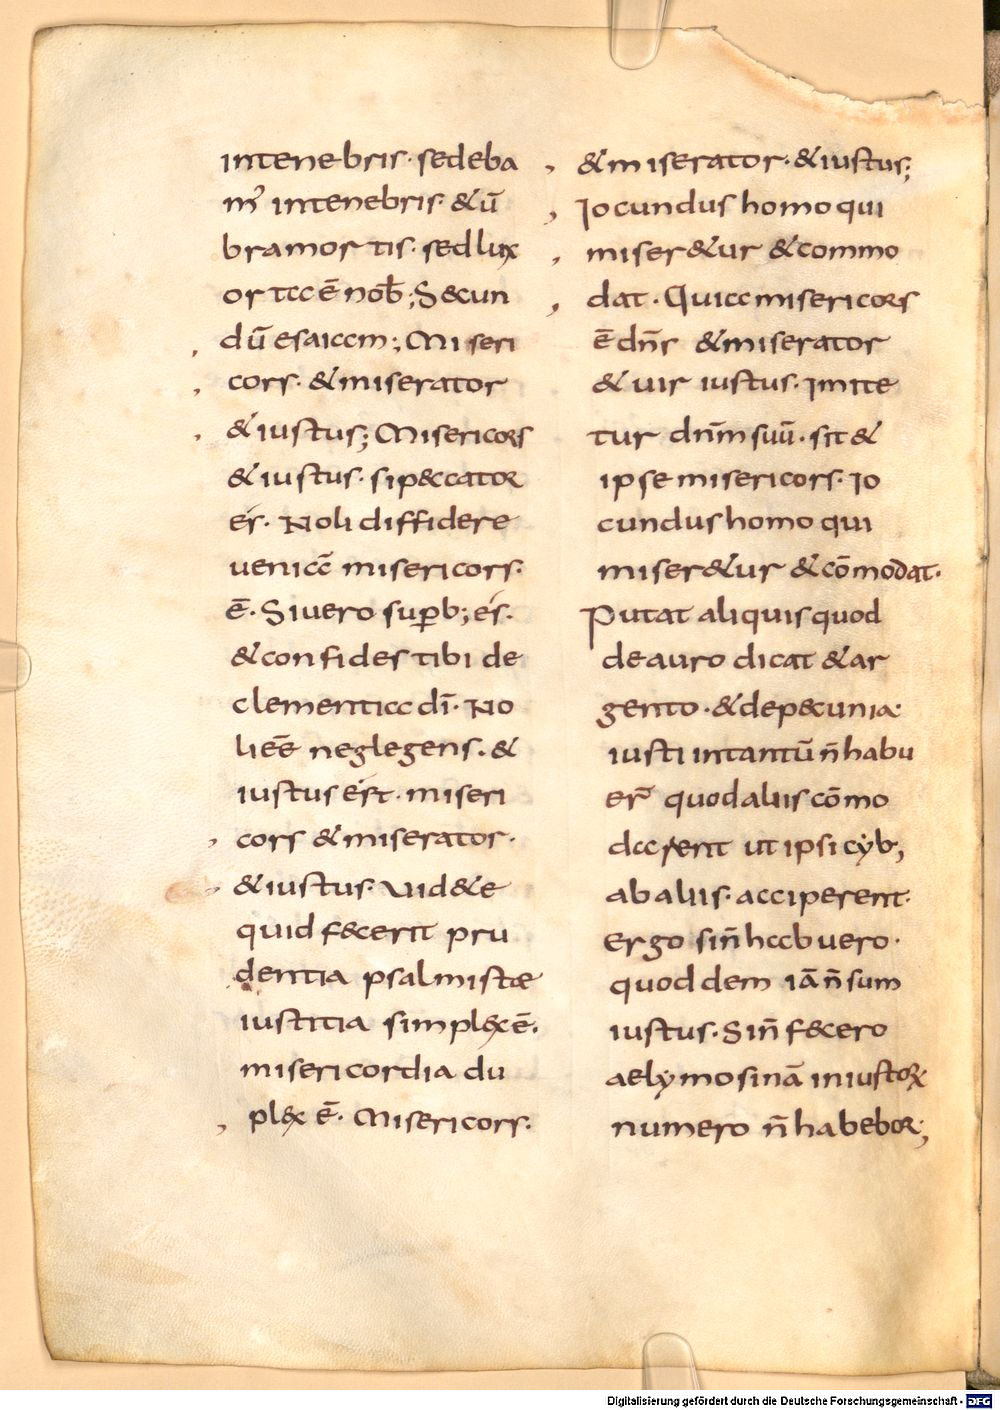 intenebris· sedeba
m᷒ intenebris· &ū
bramortis· sedlux
orta ē nob̄; S&cun
dū esaiam; Miseri
cors· &miserator
&iustus; Misericors
&iustus· sip&cator
es· Noli diffidere
uenia misericors·
ē· Siuero suꝑb; es·
&confides tibi de
clementia dī· No
li eē neglegens· &
iustus est· miseri
cors &miserator·
&iustus· Uid&e
quid f&cerit pru
dentia psalmistae
iustitia simpl&x ē·
misericordia du
pl&x ē· Misericors·
&miserator· &iustus;
Iocundus homo qui
miser&ur &commo
dat· Quia misericors
ē dn̄s &miserator
& uir iustus· Imite
tur dn̄m suū· sit &
ipse misericors· Io
cundus homo qui
miser&ur &cōmodat·
Putat aliquis quod
de auro dicat &ar
gento· &dep&cunia·
iusti intantū n̄ habu
er̄ quod aliis cōmo
darent ut ipsi cyb;
ab aliis· acciperent·
Ergo si n̄ habuero·
quod dem iā n̄ sum
iustus· Si n̄ f&cero
aelymosinā iniustoꝝ
numero n̄ habebor;
Digitalisierung gefördert durch die Deutsche Forschungsgemeinschaft - DFG